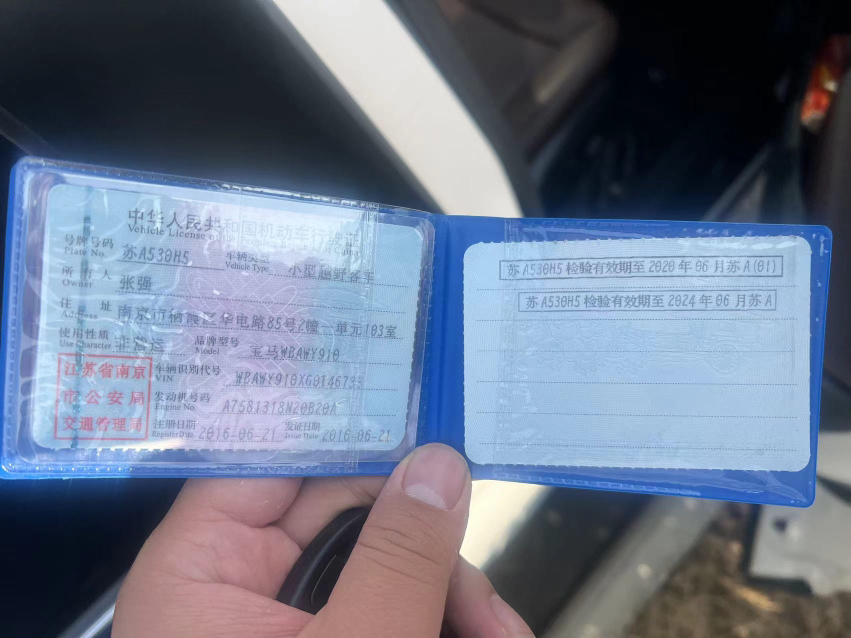 中华人民共和国机动车行驶证
Vehicle License of the
号牌号码 苏A530H5 车辆类型 小型越野客车
Plate No. Vehicle Type
所有人 张强
Owner
住址 南京市栖霞区华电路85号2幢一单元103室
Address
使用性质 非营运 品牌型号 宝马WBAWY910
Use Character Model
江苏省南京
市公安局
交通管理局
车辆识别代号 WBAWY910XG0146733
VIN
发动机号码 A7581318N20B20A
Engine No.
注册日期 2016-06-21 发证日期 2016-06-21
Register Date Issue Date
苏A530H5检验有效期至2020年06月苏A(01)
苏A530H5检验有效期至2024年06月苏A